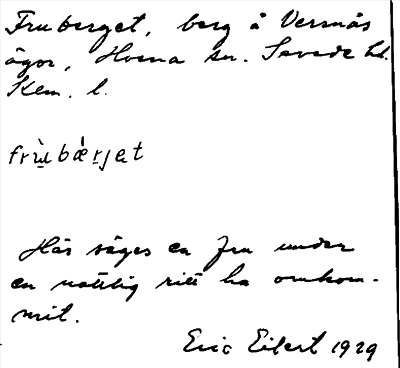 Fruberget, berg å Versnäs
ägor, Hvena sn. Sevede hd.
KLm. l.
frùbǽrjet
Här säges en fru under
en nattlig ritt ha omkom-
mit.
Eric Eilert 1929